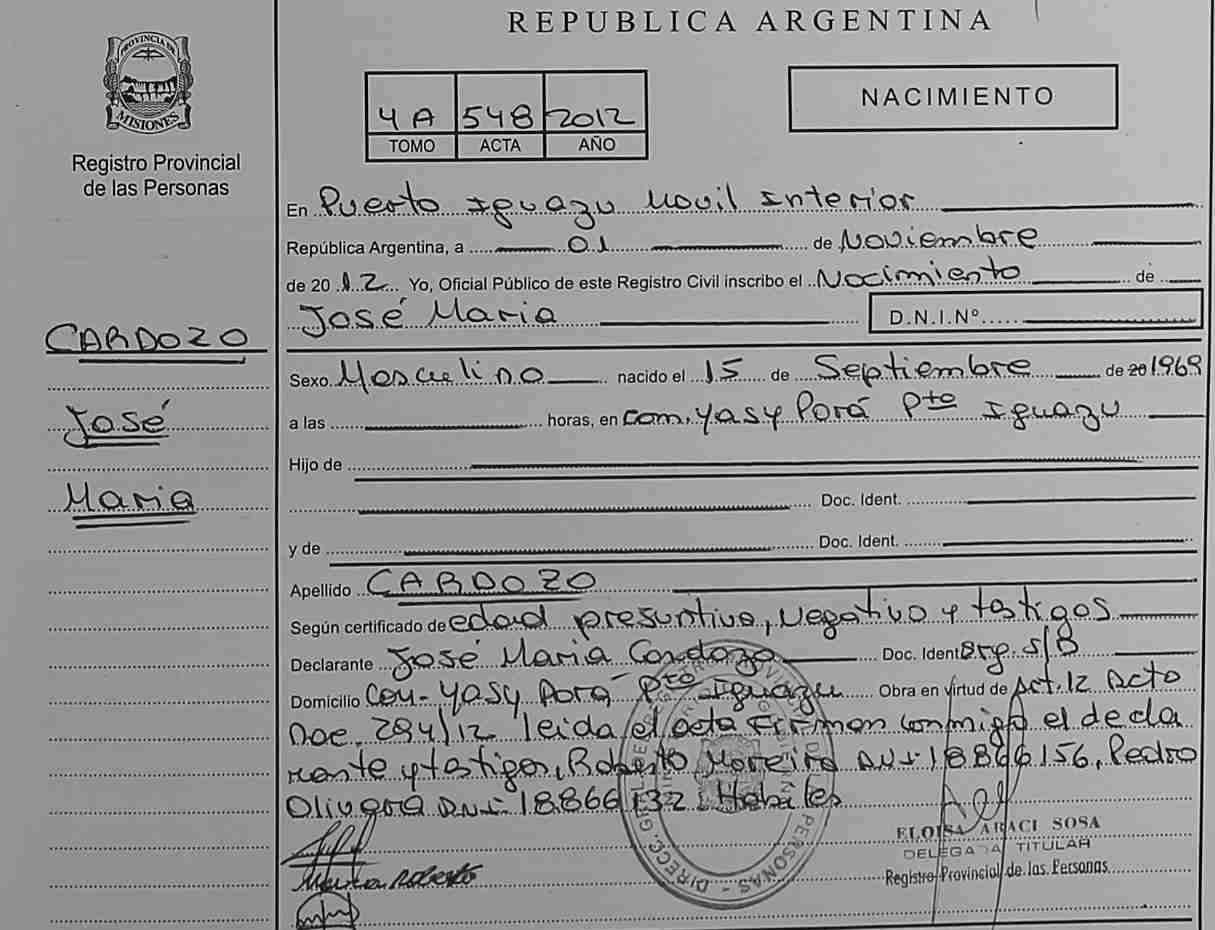 REPUBLICA ARGENTINA
PROVINCIA DE
MISIONES
Registro Provincial
de las Personas
4 A 548 2012
TOMO ACTA AÑO
NACIMIENTO
CARDOZO
José
Maria
En Puerto Iguazu Movil Interior
República Argentina, a 01 de Noviembre
de 2012 Yo, Oficial Público de este Registro Civil inscribo el Nacimiento de
José Maria D.N.I.Nº
Sexo Masculino nacido el 15 de Septiembre de 20 1969
a las horas, en Com. Yasy Porá Pto Iguazu
Hijo de
Doc. Ident.
y de Doc. Ident.
Apellido CARDOZO
Según certificado de edad presuntiva, Negativo y testigos
Declarante José Maria Cardozo Doc. Ident Arg. S/B
Domicilio Com- Yasy Porá Pto Iguazu Obra en virtud de Art. 12 Acto
294/12 leida el acta Firman conmigo el decla
rante y testigos, Roberto Moreira DNI 18866156, Pedro
Olivera DNI 18866132 Habiles
ELOISA ARACI SOSA
DELEGADA TITULAR
Registro Provincial de las Personas
Roberto